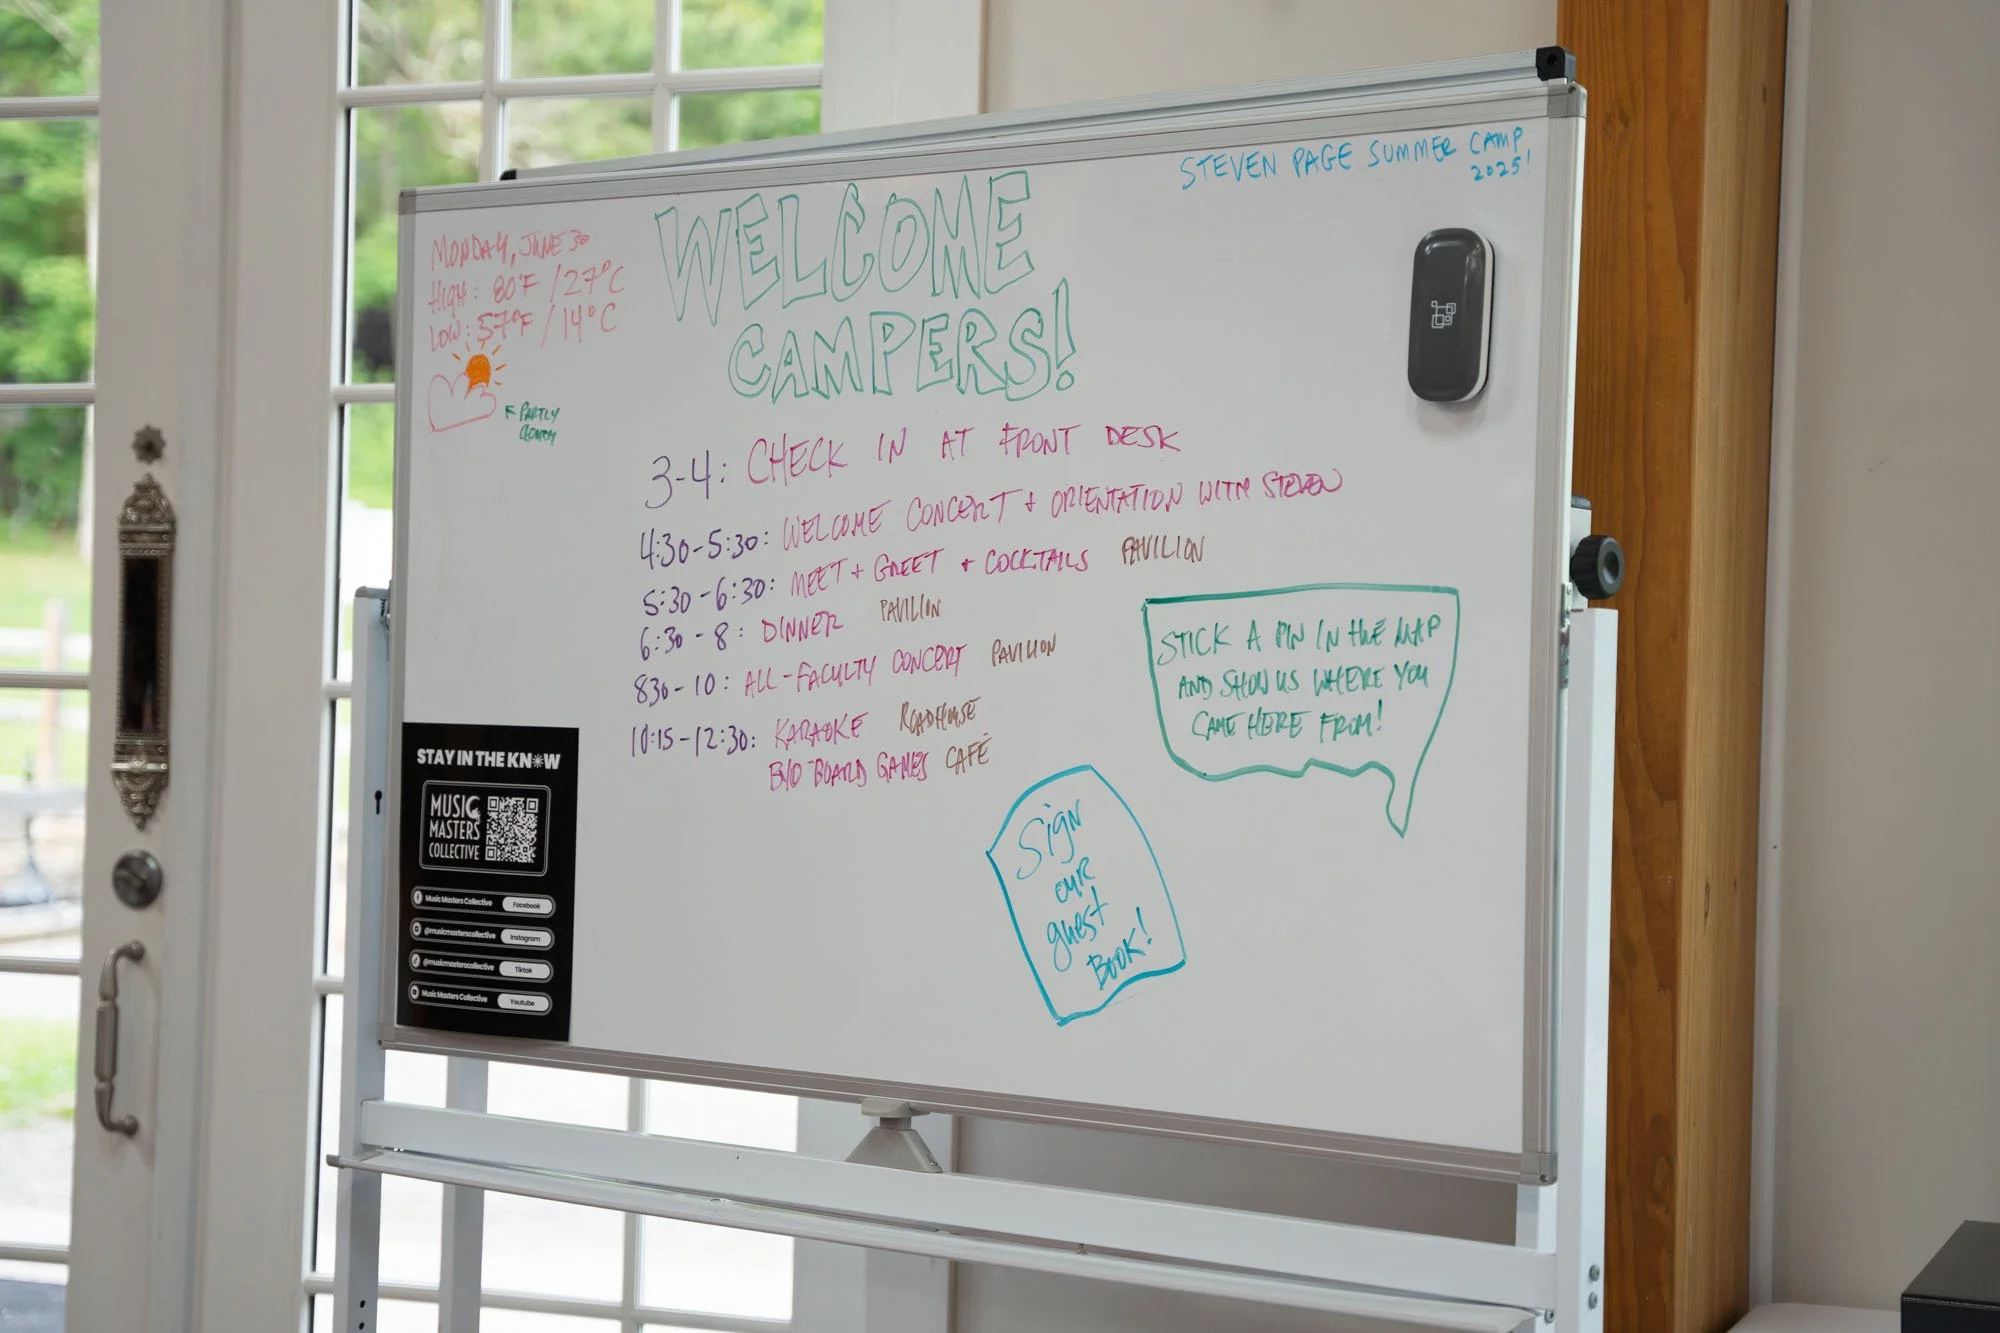 STEVEN PAGE SUMMER CAMP
2025!
MONDAY, JUNE 30
HIGH: 80°F / 27°C
LOW: 57°F / 14°C
PARTLY
CLOUDY
WELCOME
CAMPERS!
3-4: CHECK IN AT FRONT DESK
4:30-5:30: WELCOME CONCERT + ORIENTATION WITH STEVEN
5:30-6:30: MEET + GREET + COCKTAILS PAVILION
6:30-8: DINNER PAVILION
830-10: ALL-FACULTY CONCERT PAVILION
10:15-12:30: KARAOKE ROADHOUSE
BYO BOARD GAMES CAFÉ
STICK A PIN IN THE MAP
AND SHOW US WHERE YOU
CAME HERE FROM!
Sign
our
guest
BOOK!
STAY IN THE KNOW
MUSIC
MASTERS
COLLECTIVE
Music Masters Collective Facebook
@musicmasterscollective Instagram
@musicmasterscollective Tiktok
Music Masters Collective Youtube